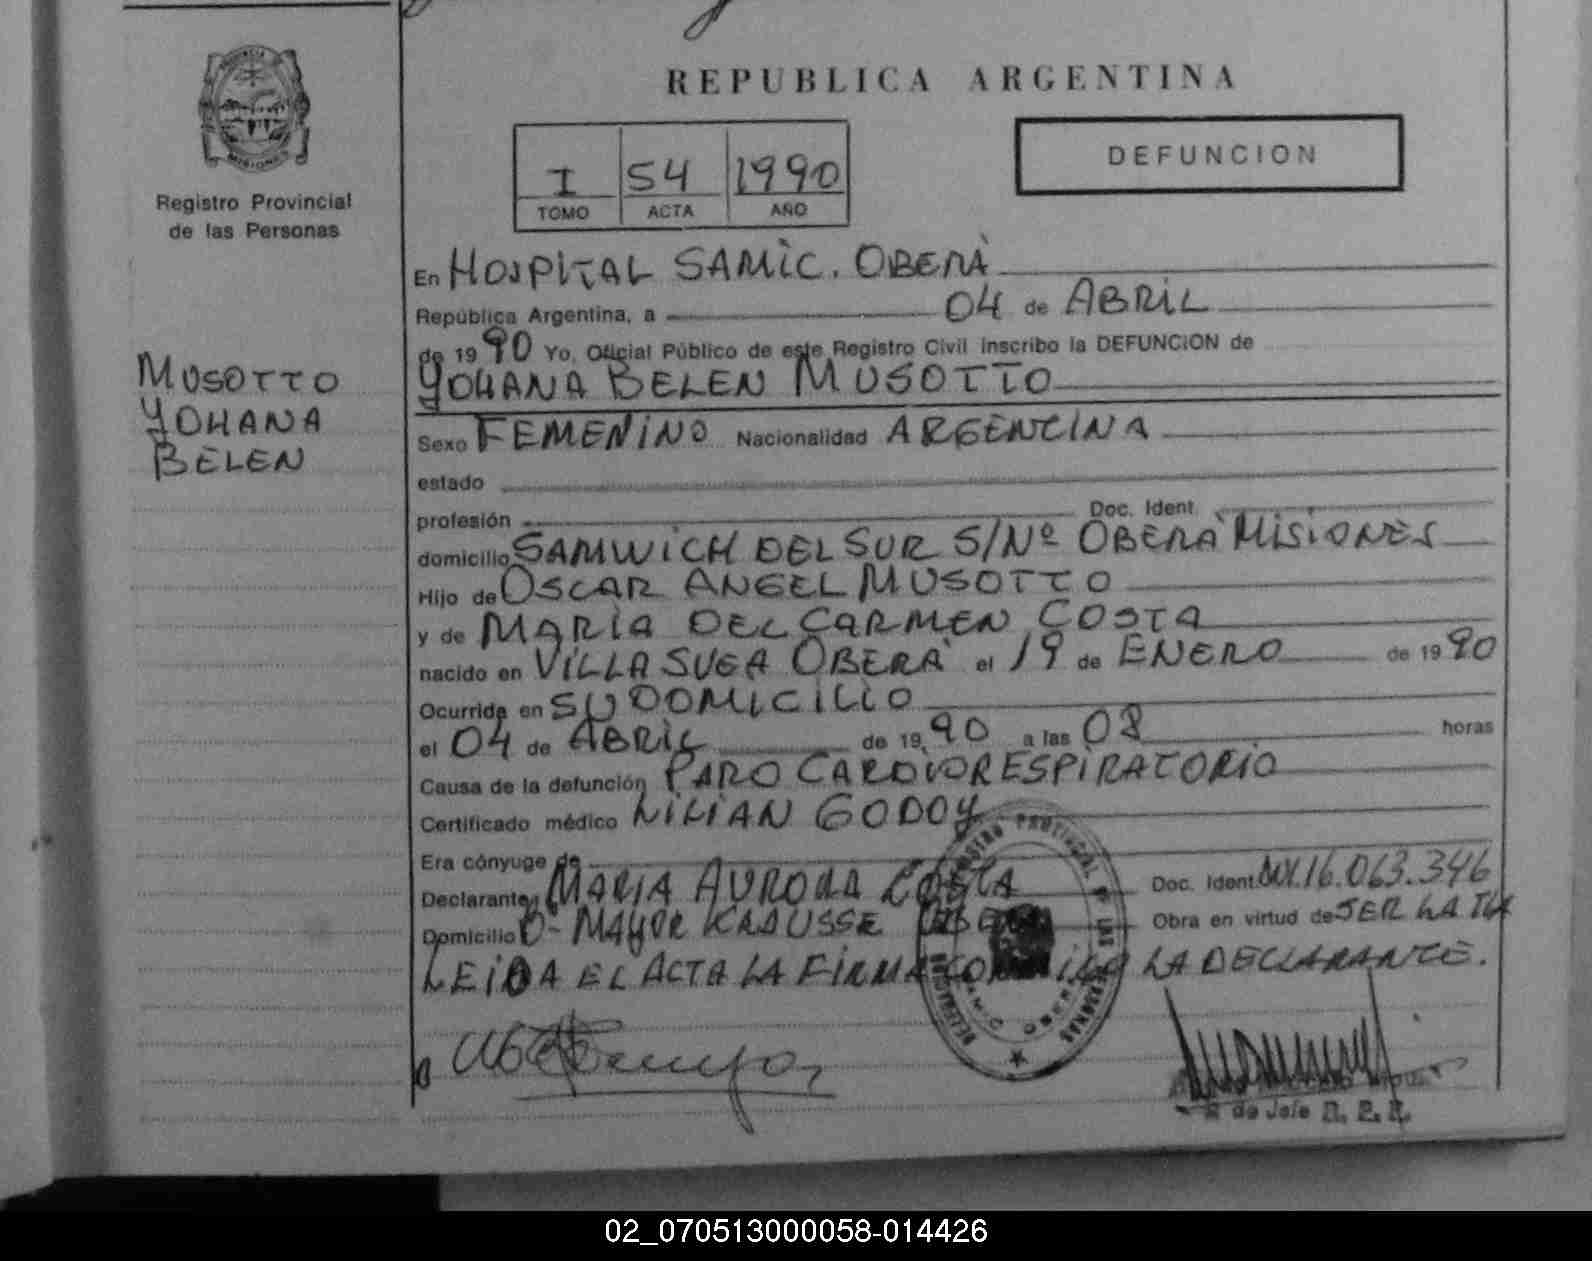 PROVINCIA
MISIONES
Registro Provincial
de las Personas
MUSOTTO
YOHANA
BELEN
REPUBLICA ARGENTINA
I 54 1990
TOMO ACTA AÑO
DEFUNCION
En HOSPITAL SAMIC. OBERÁ
República Argentina, a 04 de ABRIL
de 1990 Yo, Oficial Público de este Registro Civil inscribo la DEFUNCION de
YOHANA BELEN MUSOTTO
Sexo FEMENINO Nacionalidad ARGENTINA
estado
profesión Doc. Ident.
domicilio SAMWICH DEL SUR S/Nº OBERA MISIONES
Hijo de OSCAR ANGEL MUSOTTO
y de MARIA DEL CARMEN COSTA
nacido en VILLA SVEA OBERA el 19 de ENERO de 1990
Ocurrida en SU DOMICILIO
el 04 de ABRIL de 1990 a las 08 horas
Causa de la defunción PARO CARDIORESPIRATORIO
Certificado médico LILIAN GODOY
Era cónyuge de
Declarante MARIA AURORA COSTA Doc. Ident. DNI.16.063.346
Domicilio Bº MAYOR KRAUSSE OBERA Obra en virtud de SER LA TIA
LEIDA EL ACTA LA FIRMA CONMIGO LA DECLARANTE.
REGISTRO PROVINCIAL DE LAS PERSONAS
de Jefe R. P. P.
02_070513000058-014426